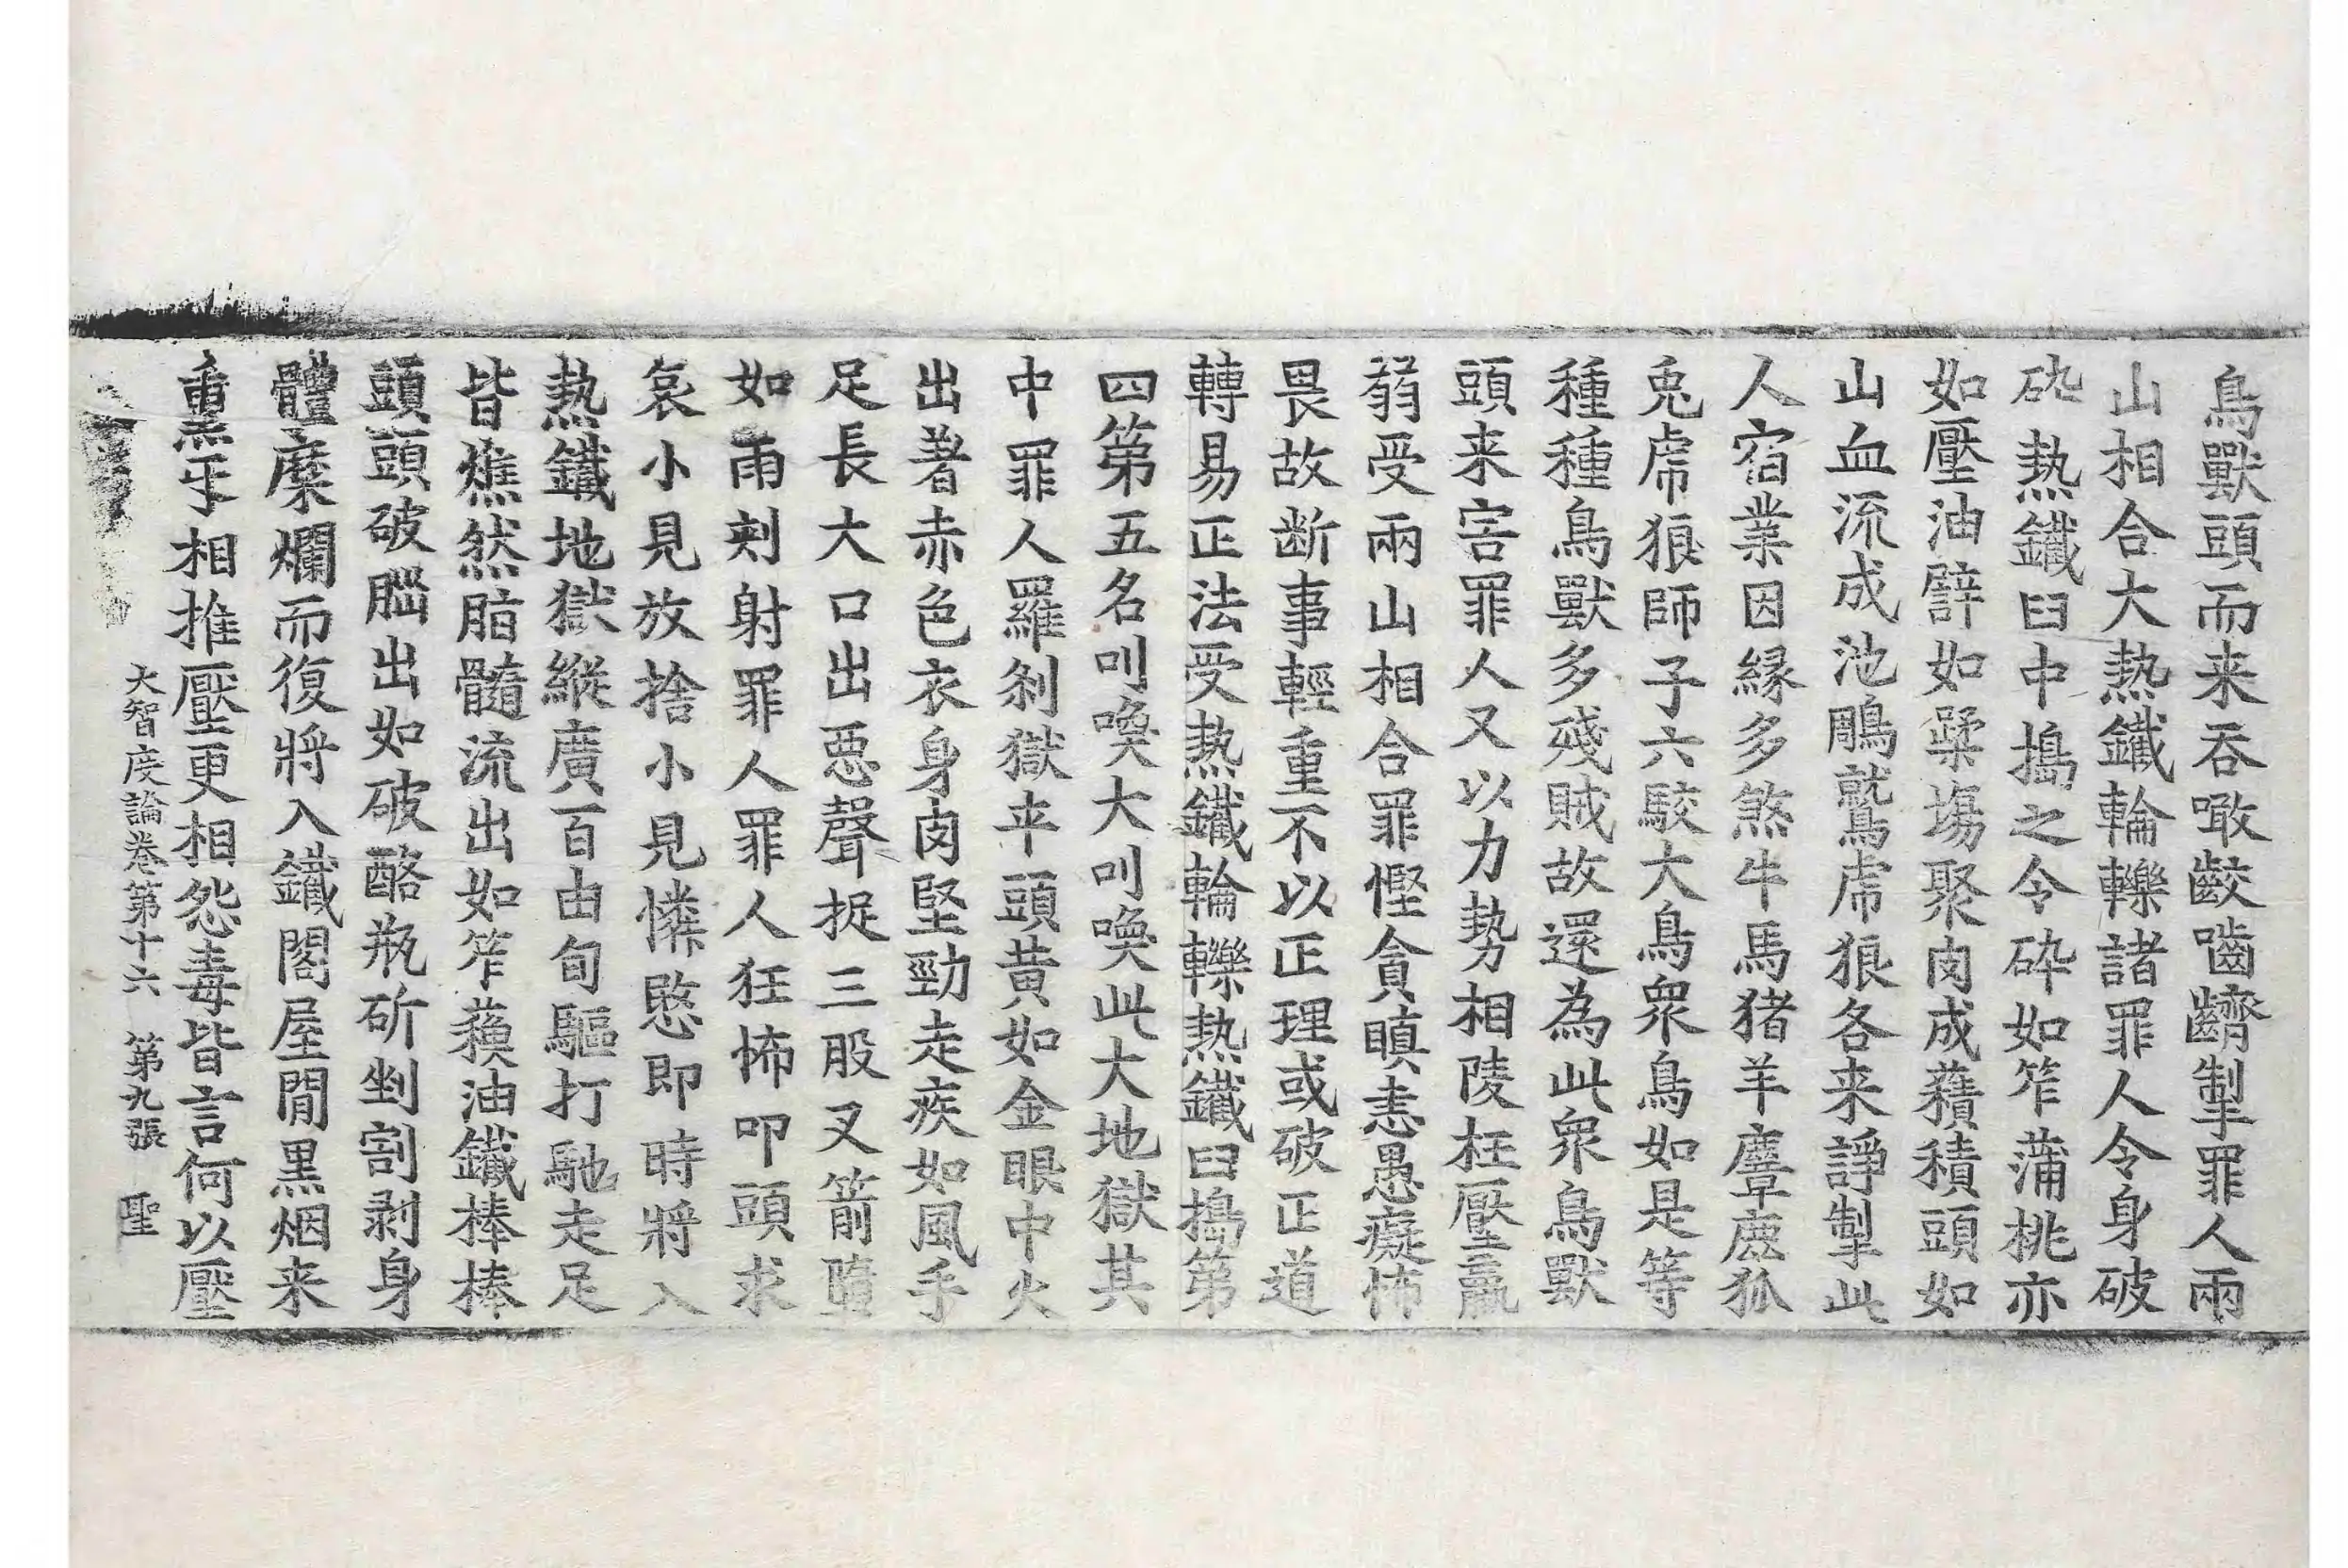 鳥獸頭而来吞噉齩嚙齌掣罪人兩
山相合大熱鐵輪轢諸罪人令身破
砕熱鐵臼中擣之令碎如笮蒲桃亦
如壓油譬如蹂場聚肉成𧂐積頭如
山血流成池鵰鷲虎狼各来諍掣此
人宿業因緣多煞牛馬猪羊麞鹿狐
兎虎狼師子六駮大鳥衆鳥如是等
種種鳥獸多殘賊故還為此衆鳥獸
頭来害罪人又以力勢相陵枉壓羸
弱受兩山相合罪慳貪瞋恚愚癡怖
畏故断事輕重不以正理或破正道
轉易正法受熱鐵輪轢熱鐵臼擣第
四第五名叫喚大叫喚此大地獄其
中罪人羅刹獄卒頭黄如金眼中火
出著赤色衣身肉堅勁走疾如風手
足長大口出惡聲捉三股叉箭墮
如雨刾射罪人罪人狂怖叩頭求
哀小見放捨小見憐愍即時將入
熱鐵地獄縱廣百由旬驅打馳走足
皆燋然脂髓流出如笮蘓油鐵棒棒
頭頭破腦出如破酪瓶斫剉割剥身
體糜爛而復將入鐵閣屋閒黒烟来
熏𠄔相推壓更相怨毒皆言何以壓
大智度論卷第十六　第九張　聖